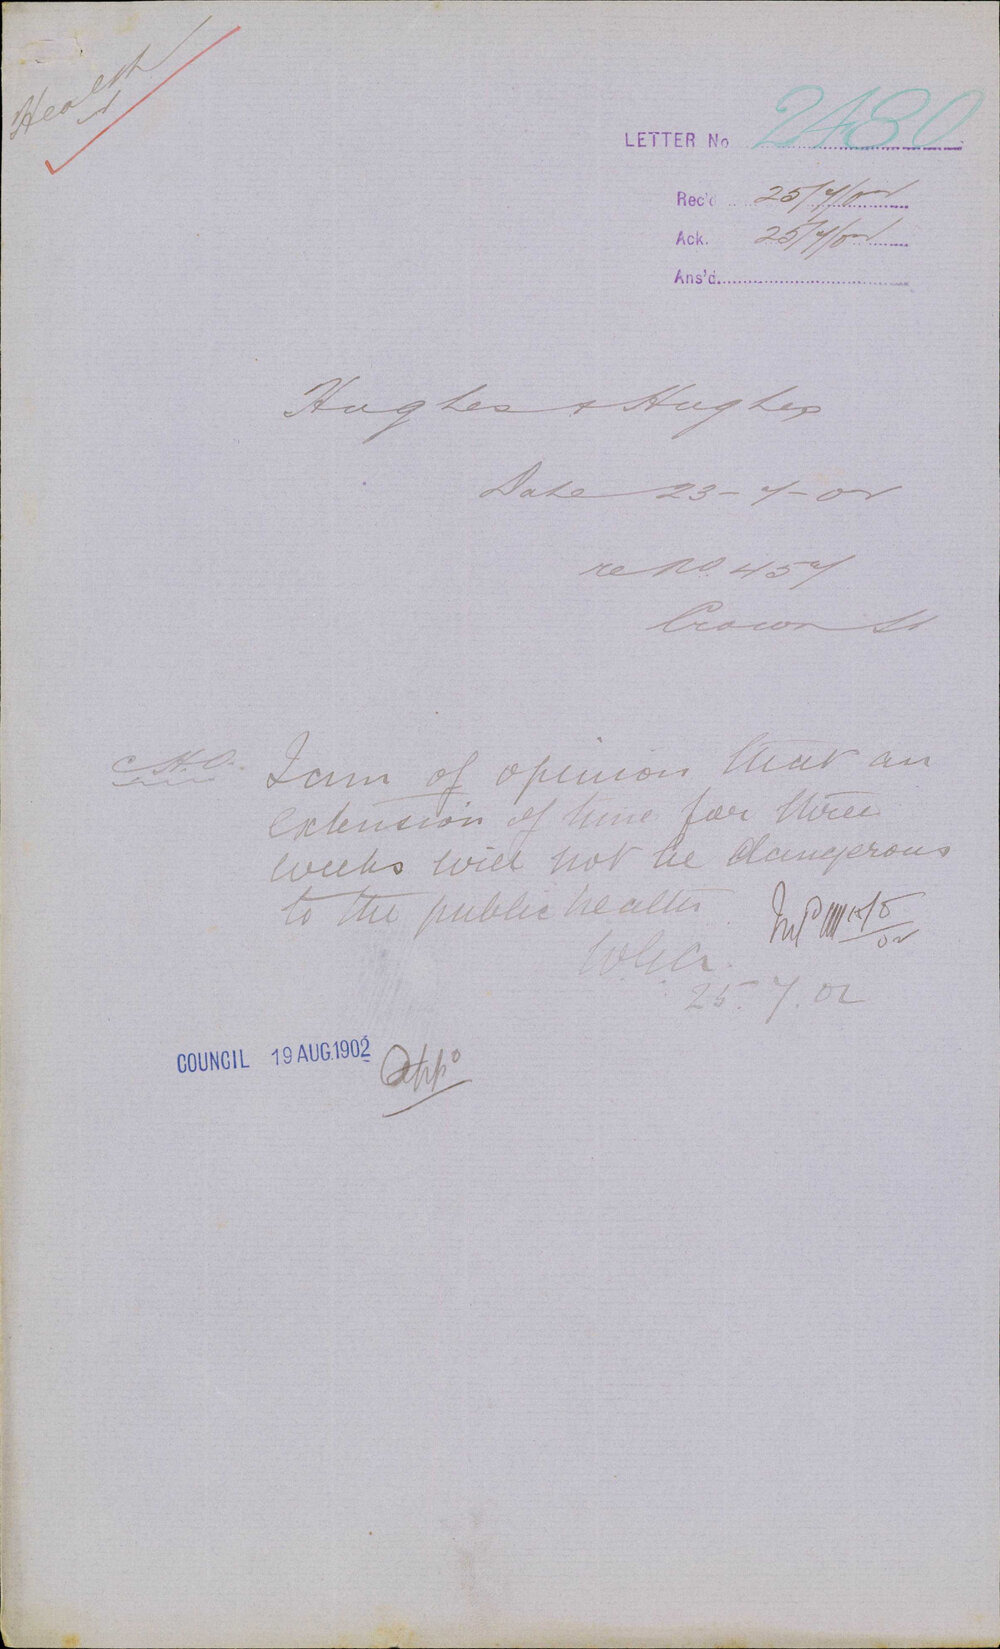 Health
LETTER No 2480
Rec'd 25/7/02
Ack. 25/7/02
Ans'd.
Hughes & Hughes
Date 23-7-02
re No 457
Crown St
C.H.O. I am of opinion that an
extension of time for three
weeks will not be dangerous
to the public health
25.7.02
COUNCIL 19 AUG.1902 Appd